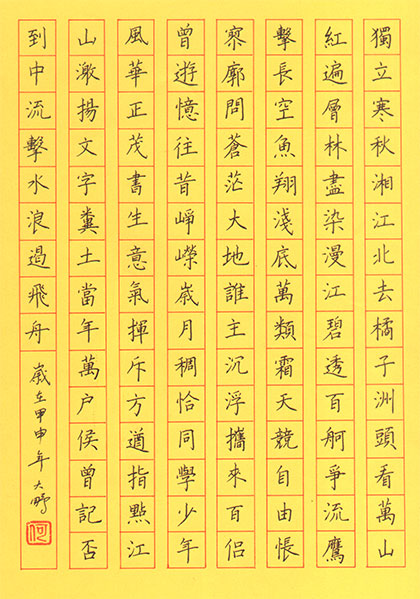 獨立寒秋湘江北去橘子洲頭看萬山
紅遍層林盡染漫江碧透百舸爭流鷹
擊長空魚翔淺底萬類霜天競自由悵
寥廓問蒼茫大地誰主沉浮攜來百侶
曾遊憶往昔崢嶸嵗月稠恰同學少年
風華正茂書生意氣揮斥方遒指點江
山激揚文字糞土當年萬户侯曾記否
到中流擊水浪遏飛舟 嵗在甲申年大鵬
何